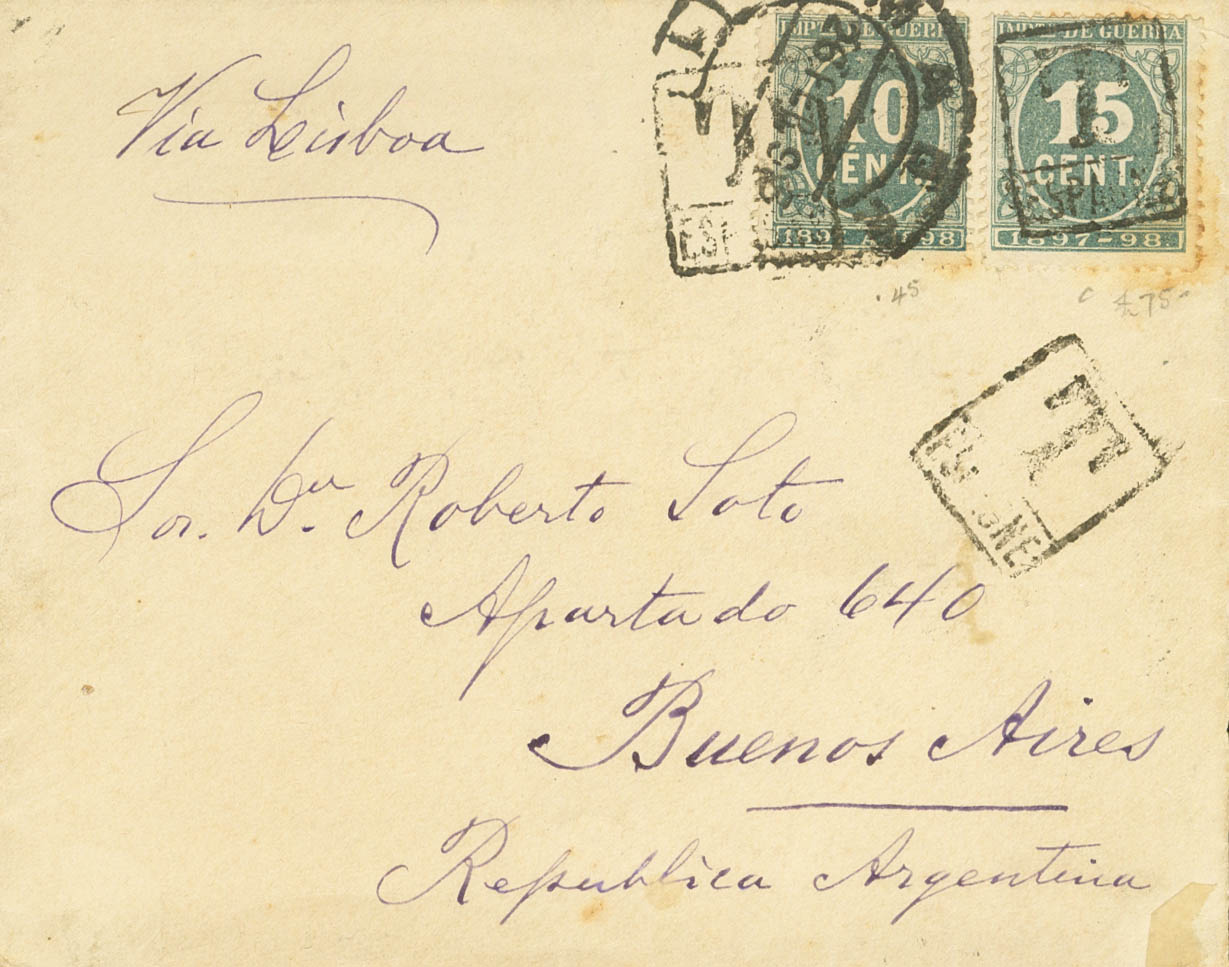 Via Lisboa
IMPTO DE GUERRA
10
CENT.
1897 A 1898
IMPTO DE GUERRA
15
CENT.
1897-98
T
T
ESPAGNE
45
75
T
ESPAGNE
Sor. Dn. Roberto Soto
Apartado 640
Buenos Aires
Republica Argentina